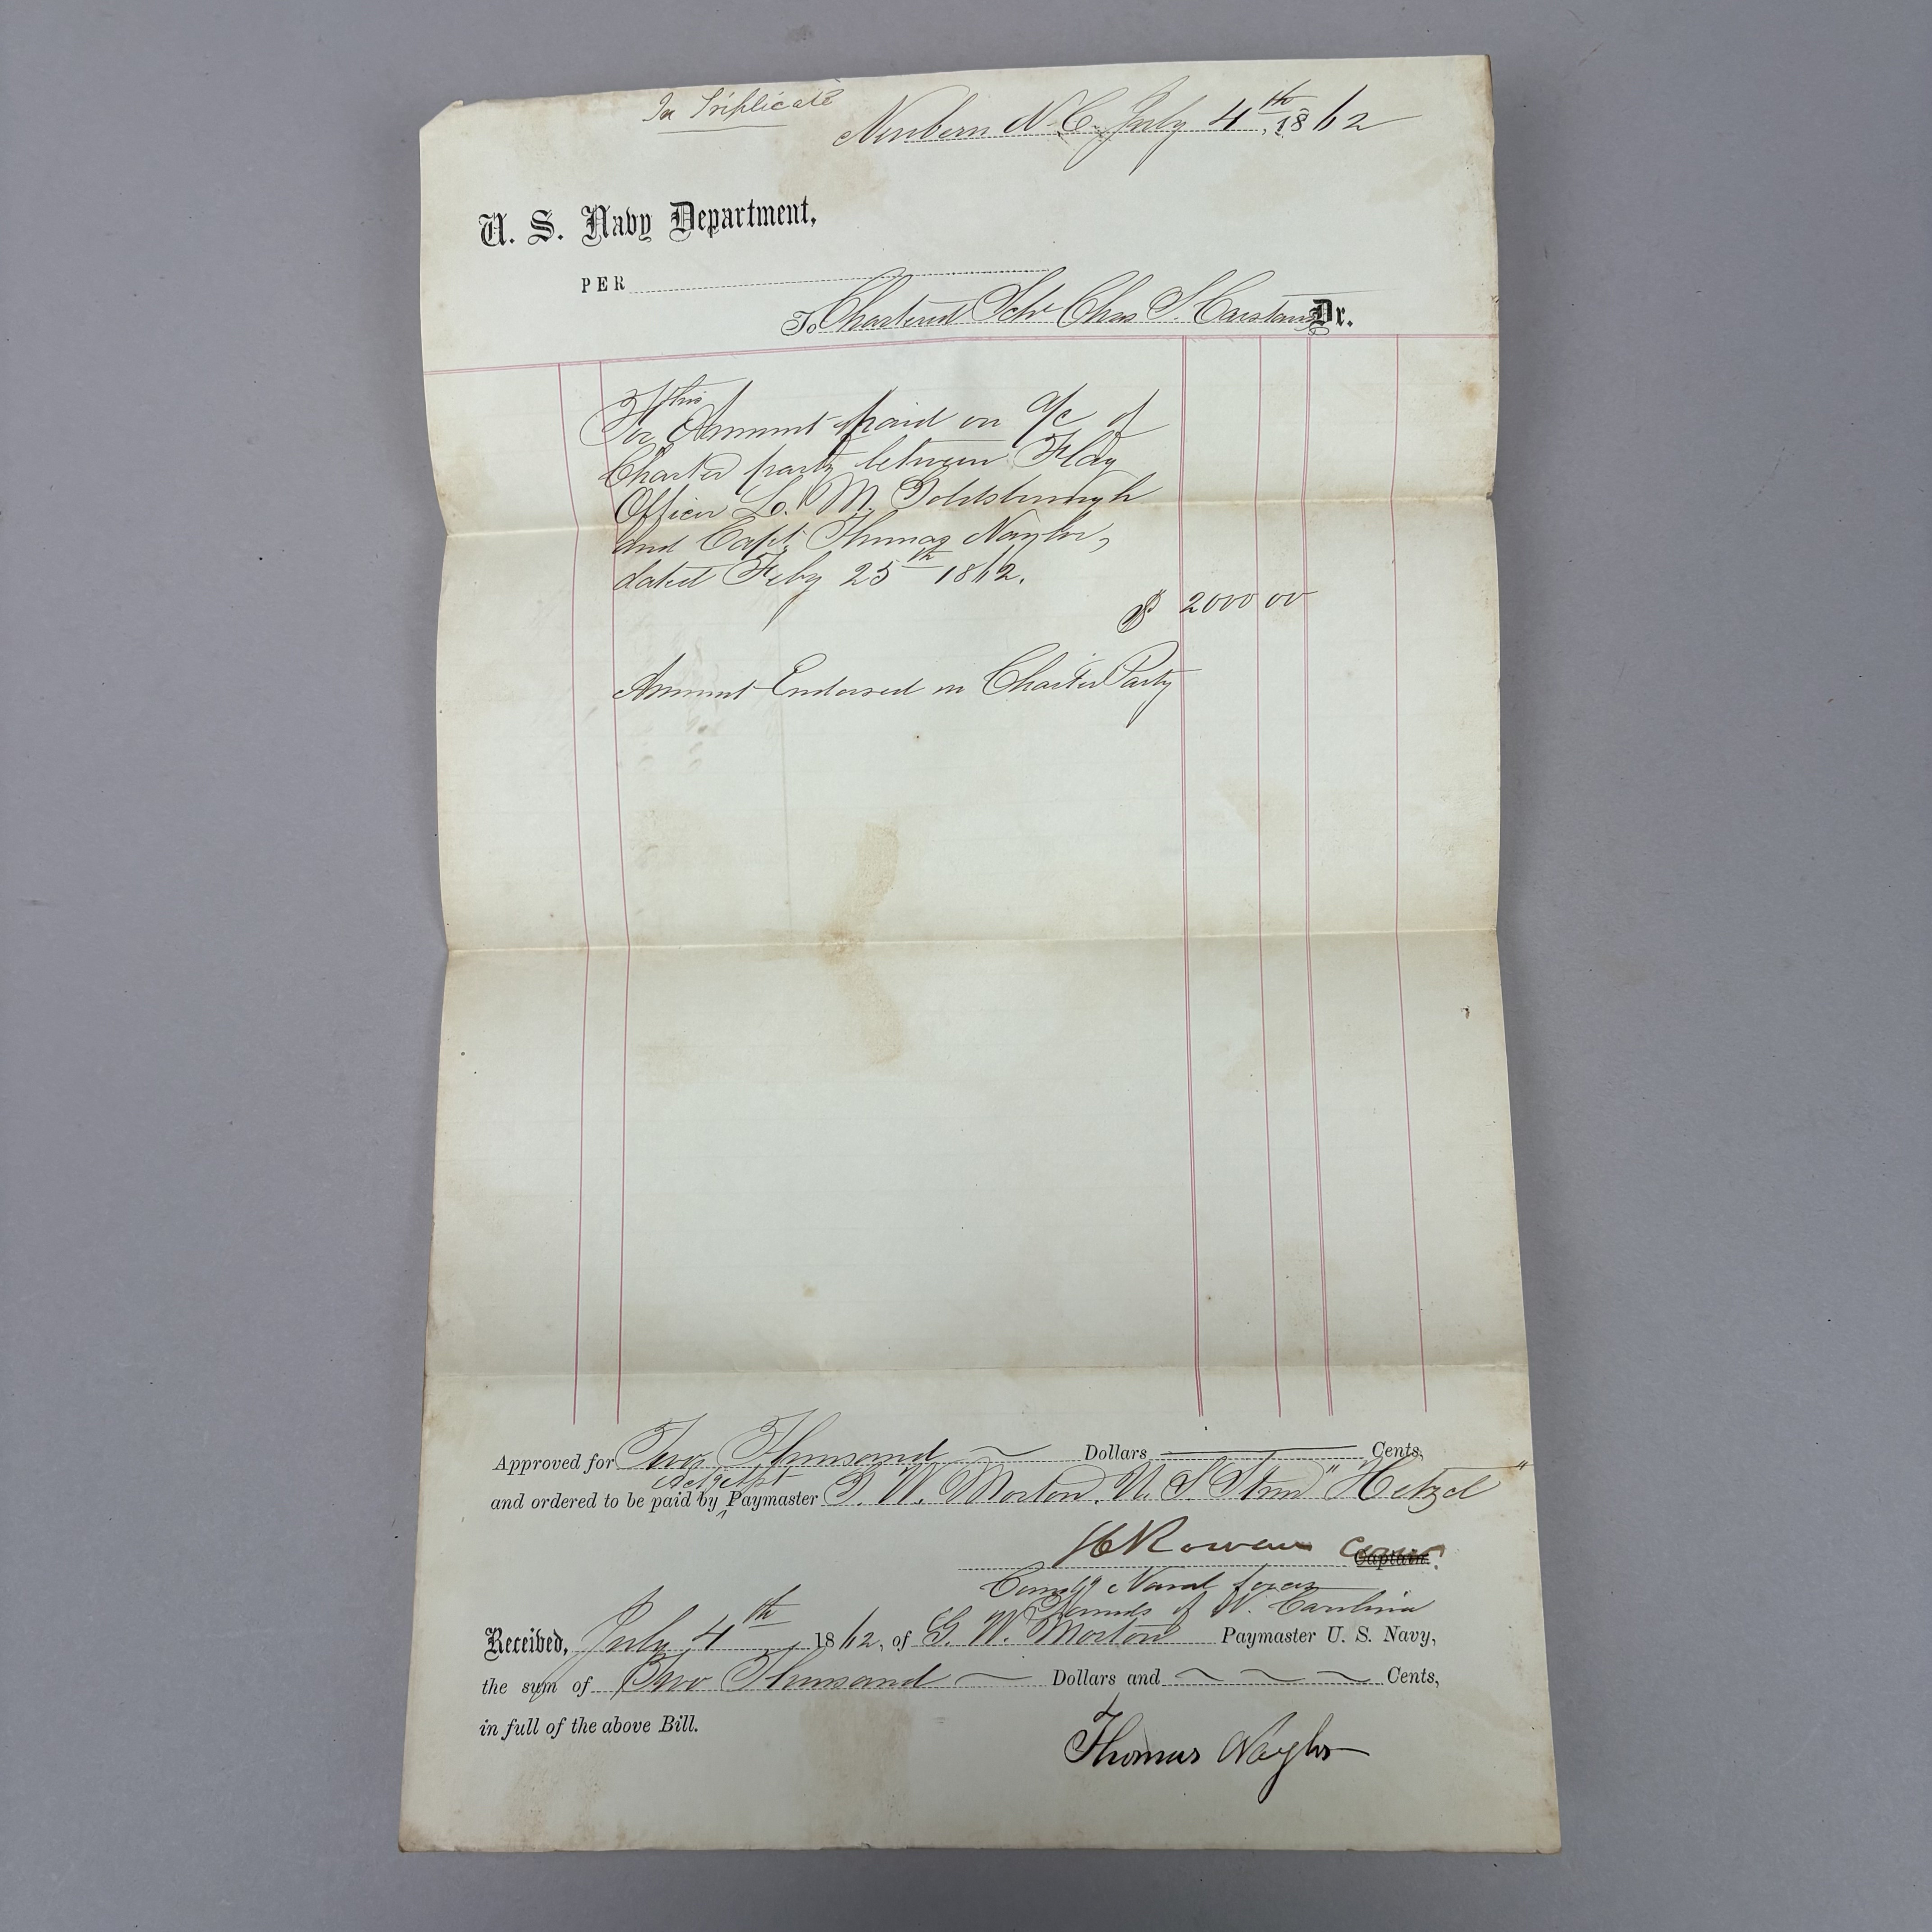 In Triplicate
Newbern N.C. July 4th, 1862
U. S. Navy Department,
PER
To Chartered Schr Chas S. Carstairs Dr.
this
For Amount paid on a/c of
Charter party between Flag
Officer L. M. Goldsborough
and Capt. Thomas Naylor,
dated Feby 25th 1862.
$ 2000 00
Amount Endorsed on Charter Party
Approved for Two Thousand Dollars Cents,
and ordered to be paid by Paymaster G. W. Morton. U. S. Stmr "Hetzel"
Rowan Captain
Comdg Naval forces
Sounds of N. Carolina
Received, July 4th 1862, of G. W. Morton Paymaster U. S. Navy,
the sum of Two Thousand Dollars and Cents,
in full of the above Bill.
Thomas Naylor